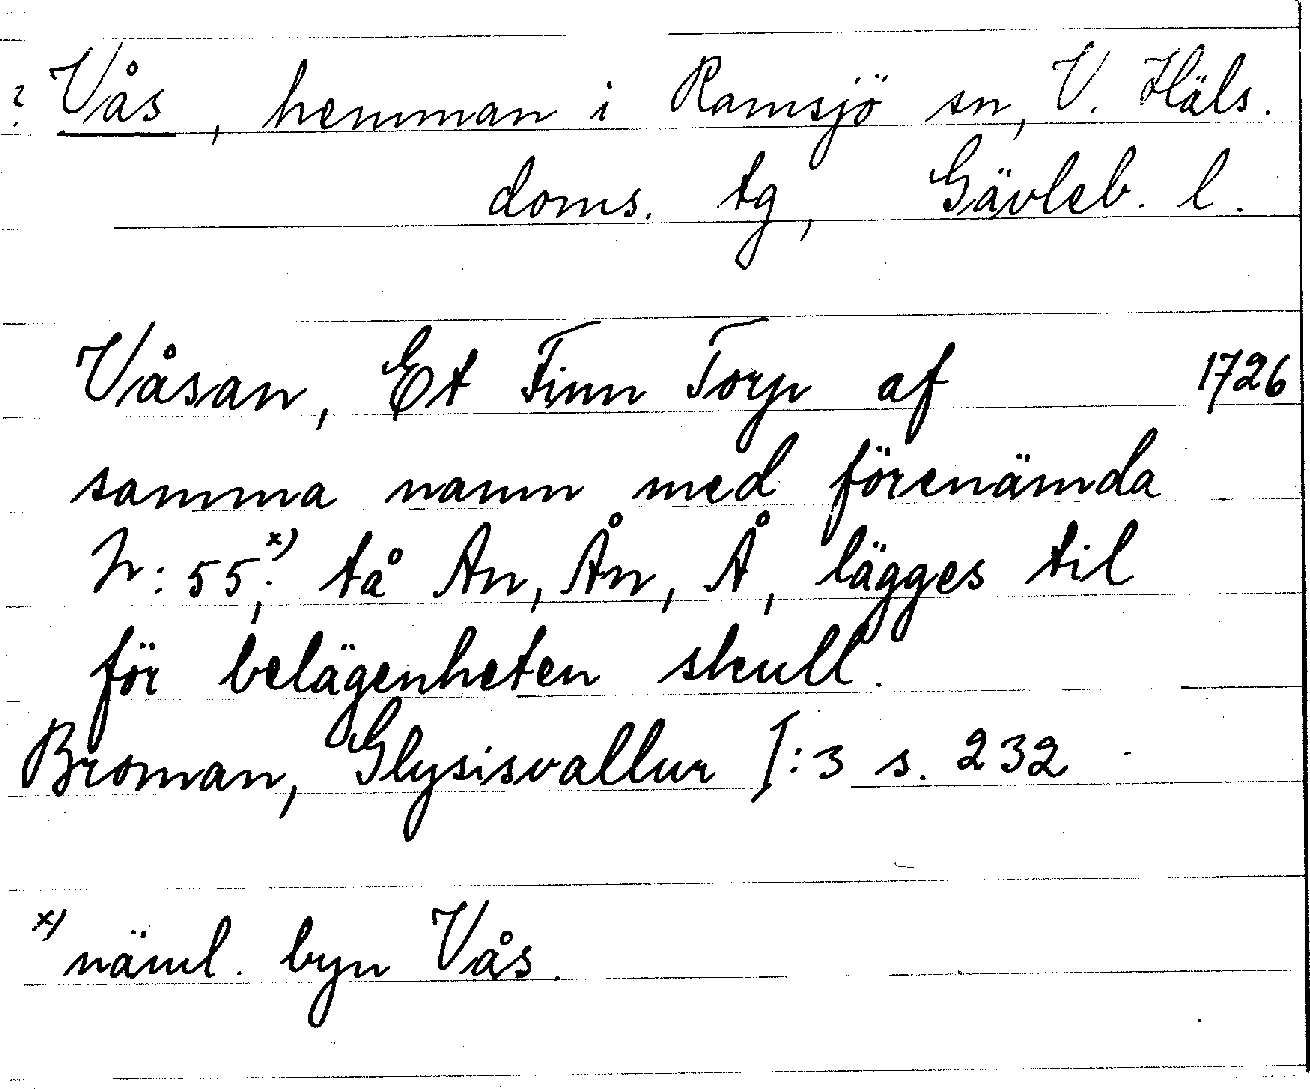 ? Vås, hemman i Ramsjö sn, V. Häls.
doms. tg, Gävleb. l.
Våsan, Et Finn Torp af 1726
samma namn med förenämda
N: 55;x) tå An, Ån, Å, lägges til
för belägenheten skull.
Broman, Glysisvallur I:3 s. 232
x) näml. byn Vås.